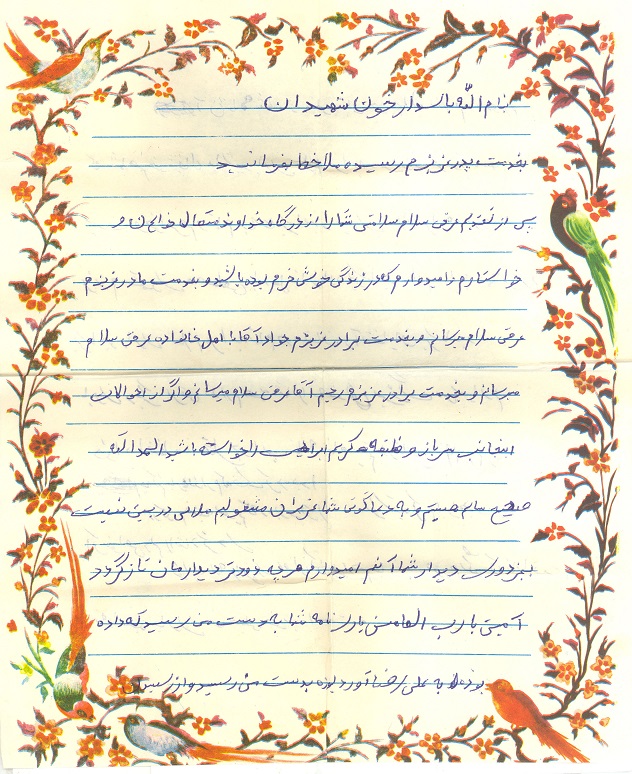 بنام الله پاسدار خون شهیدان
بخدمت پدر عزیزم رسیده ملاحظه بفرمائید
پس از تقدیم عرض سلام سلامتی شما را از درگاه خداوند متعال خواهان و
خواستارم و امیدوارم که در زندگی خوش خرم بوده باشید و بخدمت مادر عزیزم
عرض سلام میرسانم و بخدمت برادر عزیزم جواد آقا با اهل خانواده عرض سلام
میرسانم و بخدمت برادر عزیزم رحیم آقا عرض سلام میرسانم و اگر از احوالات
اینجانب سرباز وظیفه کریم ابراهیمی را خواسته باشید الحمدالله
صحیح سالم هستیم و به دعاگوئی شما عزیزان مشغولیم ملالی در بین نیست
بجز دوری دیدار شما آنهم امیدوارم هرچه زودتر دیدارمان تازه گردد
آمین یا رب العالمین پدر نامه شما به دست من رسید که داده
بودید به علی رضا آورد بود بدست من رسید و از